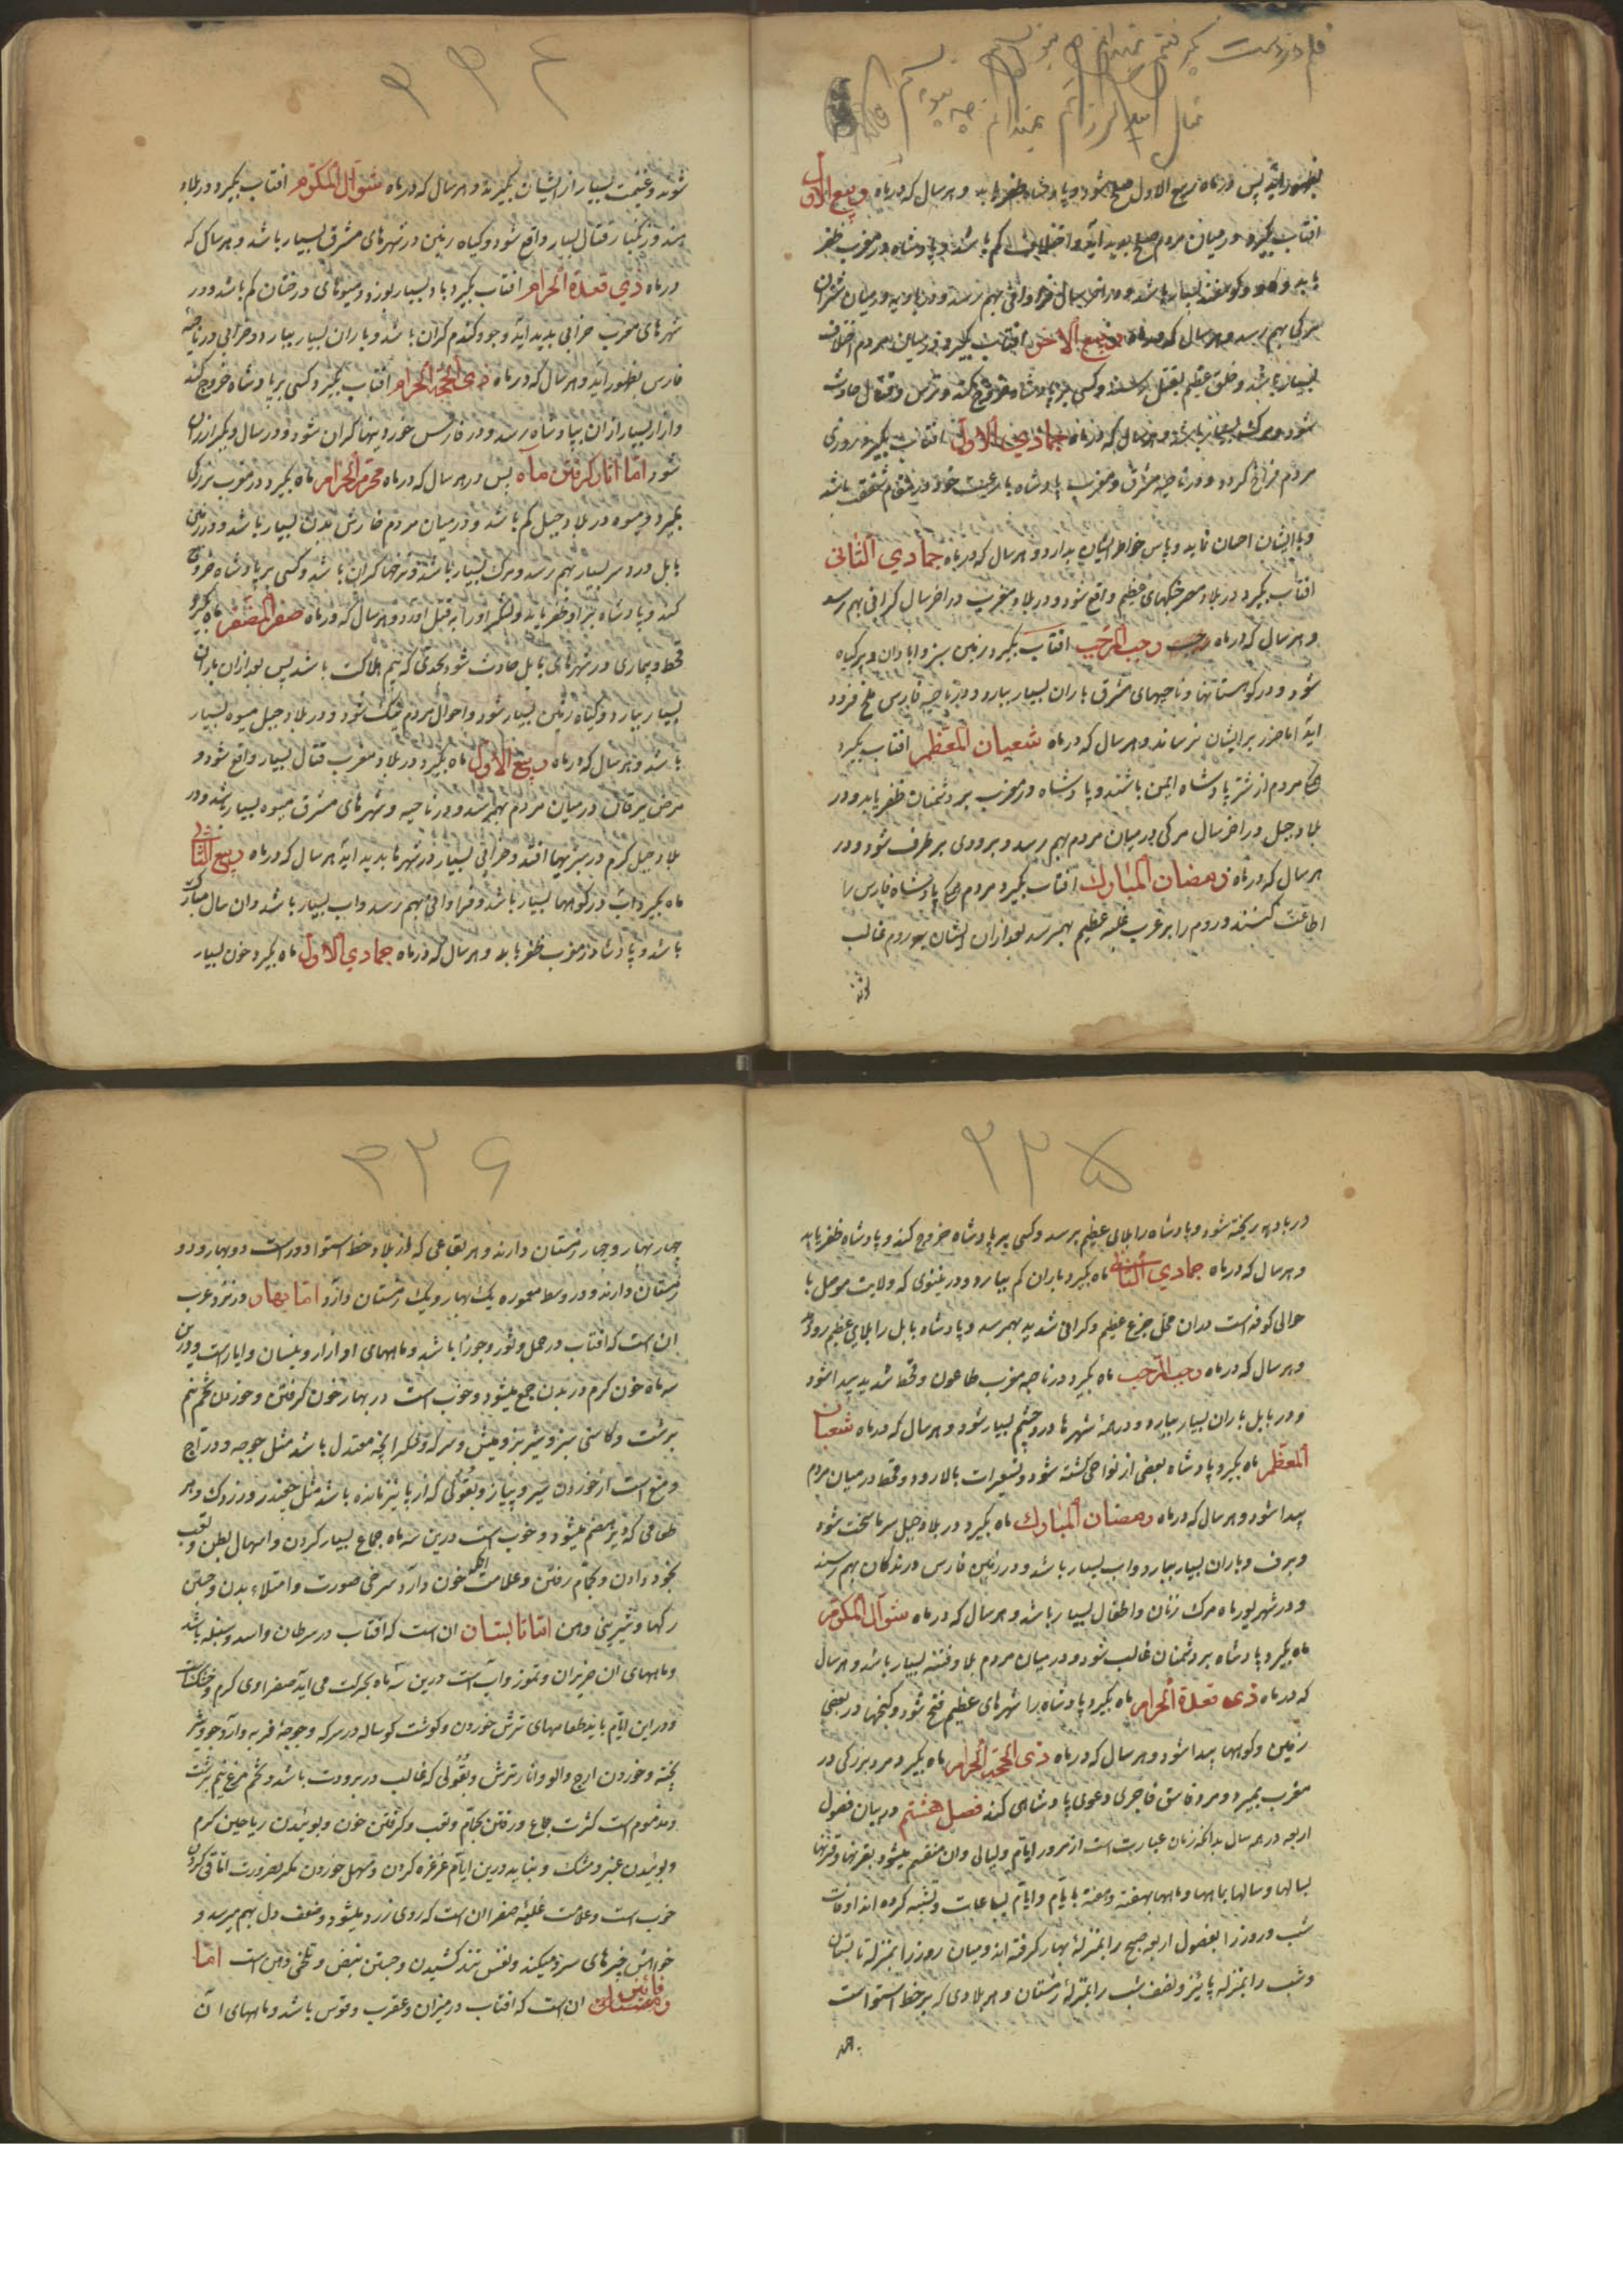 قلم در دست گیرفتم نمیدانم چه بنویسم
نمیدانم چه بنویسم
بظهور آید پس در ماه ربیع الاول صلح شود و پادشاه ظفر یابد و هر سال که در ماه ربیع الاول
افتاب بگیرد در میان مردم صلح پدید آید و اختلاف کم باشد و پادشاه در مغرب ظفر
یابد و گاو و گوسفند بسیار باشد و در اخر سال فراوانی بهم رسد و در بادیه در میان شتران
مرگی بهم رسد و هر سال که در ماه ربیع الاخر افتاب بگیرد در میان مردم اختلاف
بسیار باشد و خلق عظیم بقتل رسند و کسی بر پادشاه خروج کند و ترس و قتال حادث
شود و مرگ بسیار باشد و هر سال که در ماه جمادی الاول افتاب بگیرد روزی
مردم فراخ گردد و در ناحیه مشرق و مغرب پادشاه با رعیت خود در مقام شفقت باشد
و با ایشان احسان نماید و پاس خواطر ایشان بدارد و هر سال که در ماه جمادی الثانی
افتاب بگیرد در بلاد مصر جنگهای عظیم واقع شود و در بلاد مغرب در اخر سال گرانی بهم رسد
و هر سال که در ماه رجب رجب المرجب افتاب بگیرد زمین سبز و ابادان و پر گیاه
شود و در کوهستانها و ناحیهای مشرق باران بسیار ببارد و در ناحیه فارس ملخ فرود
اید اما ضرر بر ایشان نرساند و هر سال که در ماه شعبان المعظم افتاب بگیرد
همه مردم از شر پادشاه ایمن باشند و پادشاه در مغرب بر دشمنان ظفر یابد و در
بلاد جبل در اخر سال مرگی در میان مردم بهم رسد و بزودی بر طرف شود و در
هر سال که در ماه رمضان المبارک افتاب بگیرد مردم همه پادشاه فارس را
اطاعت کنند و روم را بر عرب غلبه عظیم بهم رسد بعد از آن ایشان بر روم غالب
شوند
۲۲۴
شوند و غنیمت بسیار از ایشان بگیرند و هر سال که در ماه شوال المکرم افتاب بگیرد در بلاد
هند و زنگبار قتال بسیار واقع شود و گیاه زمین در شهرهای مشرق بسیار باشد و هر سال که
در ماه ذی قعدة الحرام افتاب بگیرد باد بسیار بوزد و میوهای درختان کم باشد و در
شهرهای مغرب خرابی پدید اید و جو و گندم گران باشد و باران بسیار ببارد و خرابی در ناحیه
فارس بظهور آید و هر سال که در ماه ذی الحجة الحرام افتاب بگیرد کسی بر پادشاه خروج کند
و ازار بسیار از ان بپادشاه رسد و در فارس خوردنیها گران شود و در سال دیگر ارزان
شود اما اثار گرفتن ماه پس در هر سال که در ماه محرم الحرام ماه بگیرد در مغرب بزرگی
بمیرد و میوه در بلاد جبل کم باشد و در میان مردم خارش بدن بسیار باشد و در زمین
بابل درد سر بسیار بهم رسد و مرگ بسیار باشد و نرخها گران باشد و کسی بر پادشاه خروج
کند و پادشاه بر او ظفر یابد و لشکر او را بقتل اورد و هر سال که در ماه صفر المظفر ماه بگیرد
قحط و بیماری در شهرهای بابل حادث شود بحدی که بیم هلاکت باشد پس بعد از ان باران
بسیار ببارد و گیاه زمین بسیار شود و احوال مردم نیک شود و در بلاد جبل میوه بسیار
باشد و هر سال که در ماه ربیع الاول ماه بگیرد در بلاد مغرب قتال بسیار واقع شود و
مرض یرقان در میان مردم بهم رسد و در ناحیه و شهرهای مشرق میوه بسیار باشد و در
بلاد جبل کرم در سبزیها افتد و خرابی بسیار در شهرها پدید اید هر سال که در ماه ربیع الثانی
ماه بگیرد اب در کوهها بسیار باشد و فراوانی بهم رسد و اب بسیار باشد و ان سال مبارک
باشد و پادشاه در مغرب ظفر یابد و هر سال که در ماه جمادی الاول ماه بگیرد خون بسیار
۲۲۵
در بادیه ریخته شود و پادشاه را بلای عظیم برسد و کسی بر پادشاه خروج کند و پادشاه ظفر یابد
و هر سال که در ماه جمادی الثانیه ماه بگیرد باران کم ببارد و در نینوی که ولایت موصل با
حوالی کوفه است دران محل جزع عظیم و گرانی شدید بهم رسد و پادشاه بابل را بلای عظیم رو دهد
و هر سال که در ماه رجب المرجب ماه بگیرد در ناحیه مغرب طاعون و قحط شدید پیدا شود
و در بابل باران بسیار ببارد و در همه شهرها درد چشم بسیار شود و هر سال که در ماه شعبان
المعظم ماه بگیرد پادشاه بعضی از نواحی کشته شود و تسعیرات بالا رود و قحط در میان مردم
پیدا شود و هر سال که در ماه رمضان المبارک ماه بگیرد در بلاد جبل سرما سخت شود
و برف و باران بسیار ببارد و اب بسیار باشد و در زمین فارس درندگان بهم رسند
و در شهریور ماه مرگ زنان و اطفال بسیار باشد و هر سال که در ماه شوال المکرم
ماه بگیرد پادشاه بر دشمنان غالب شود و در میان مردم بلا و فتنه بسیار باشد و هر سال
که در ماه ذی قعدة الحرام ماه بگیرد پادشاه را شهرهای عظیم فتح شود و گنجها در بعضی
زمین و کوهها پیدا شود و هر سال که در ماه ذی الحجة الحرام ماه بگیرد مرد بزرگی در
مغرب بمیرد و مرد فاسق فاجری دعوی پادشاهی کند فصل هشتم در بیان فصول
اربعه در هر سال بدانکه زمان عبارتست از مرور ایام و لیالی و ان منقسم میشود بقرنها و قرنها
بسالها و سالها بماهها و ماهها بهفته و هفته بایام و ایام بساعات و تشبیه کرده اند اوقات
شب و روز را بفصول اربعه صبح را بمنزلهٔ بهار گرفته اند و میان روز را بمنزله تابستان
و شب را بمنزله پائیز و نصف شب را بمنزلهٔ زمستان و هر بلادی که بر خط استوا است
۲۲۶
چهار بهار و چهار زمستان دارند و هر بقاعی که از بلاد خط استوا دور است دو بهار و دو
زمستان دارند و در وسط معموره یک بهار و یک زمستان دارد اما بهار و نزد عرب
ان است که افتاب در حمل و ثور و جوزا باشد و ماههای او ازار و نیسان و ایار است و درین
سه ماه خون گرم در بدن جمع میشود و خوب است در بهار خون گرفتن و خوردن تخم نیم
برشت و کاسنی سبز و شیر بز و میش و سرکه و شکر انچه معتدل باشد مثل جوجه و دراج
و منع است از خوردن سیر و پیاز و بقولی که از پائیز مانده باشد مثل چغندر و زردک و هر
طعامی که دیر هضم میشود و خوب است درین سه ماه جماع بسیار کردن و اسهال بطن و تعب
بخود دادن و بحمام رفتن و علامت خون دارد سرخی صورت و امتلاء بدن و جستن
رگها و شیرینی دهن اما تابستان ان است که افتاب در سرطان و اسد و سنبله باشد
و ماههای ان حزیران و تموز و اب است درین سه ماه بحرکت می اید صفراوی گرم و خشک است
و در این ایام باید طعامهای ترش خوردن و گوشت گوساله در سرکه و جوجهٔ فربه و ارد جو و شیر
پخته و خوردن الو و انار ترش و بقولی که غالب در برودت باشد و تخم مرغ نیم برشت
و مذموم است کثرت جماع و رفتن بحمام و تعب و گرفتن خون و بوئیدن ریاحین گرم
و بوئیدن عنبر و مشک و نباید درین ایام غرغره کردن و مسهل خوردن مگر بضرورت اما قی کردن
خوب است و علامت غلبهٔ صفرا ان است که روی زرد میشود و ضعف دل بهم میرسد و
خواهش چیزهای سرد میکند و نفس تند کشیدن و جستن نبض و تلخی دهن است اما
پائیز ان است که افتاب در میزان و عقرب و قوس باشد و ماههای ان